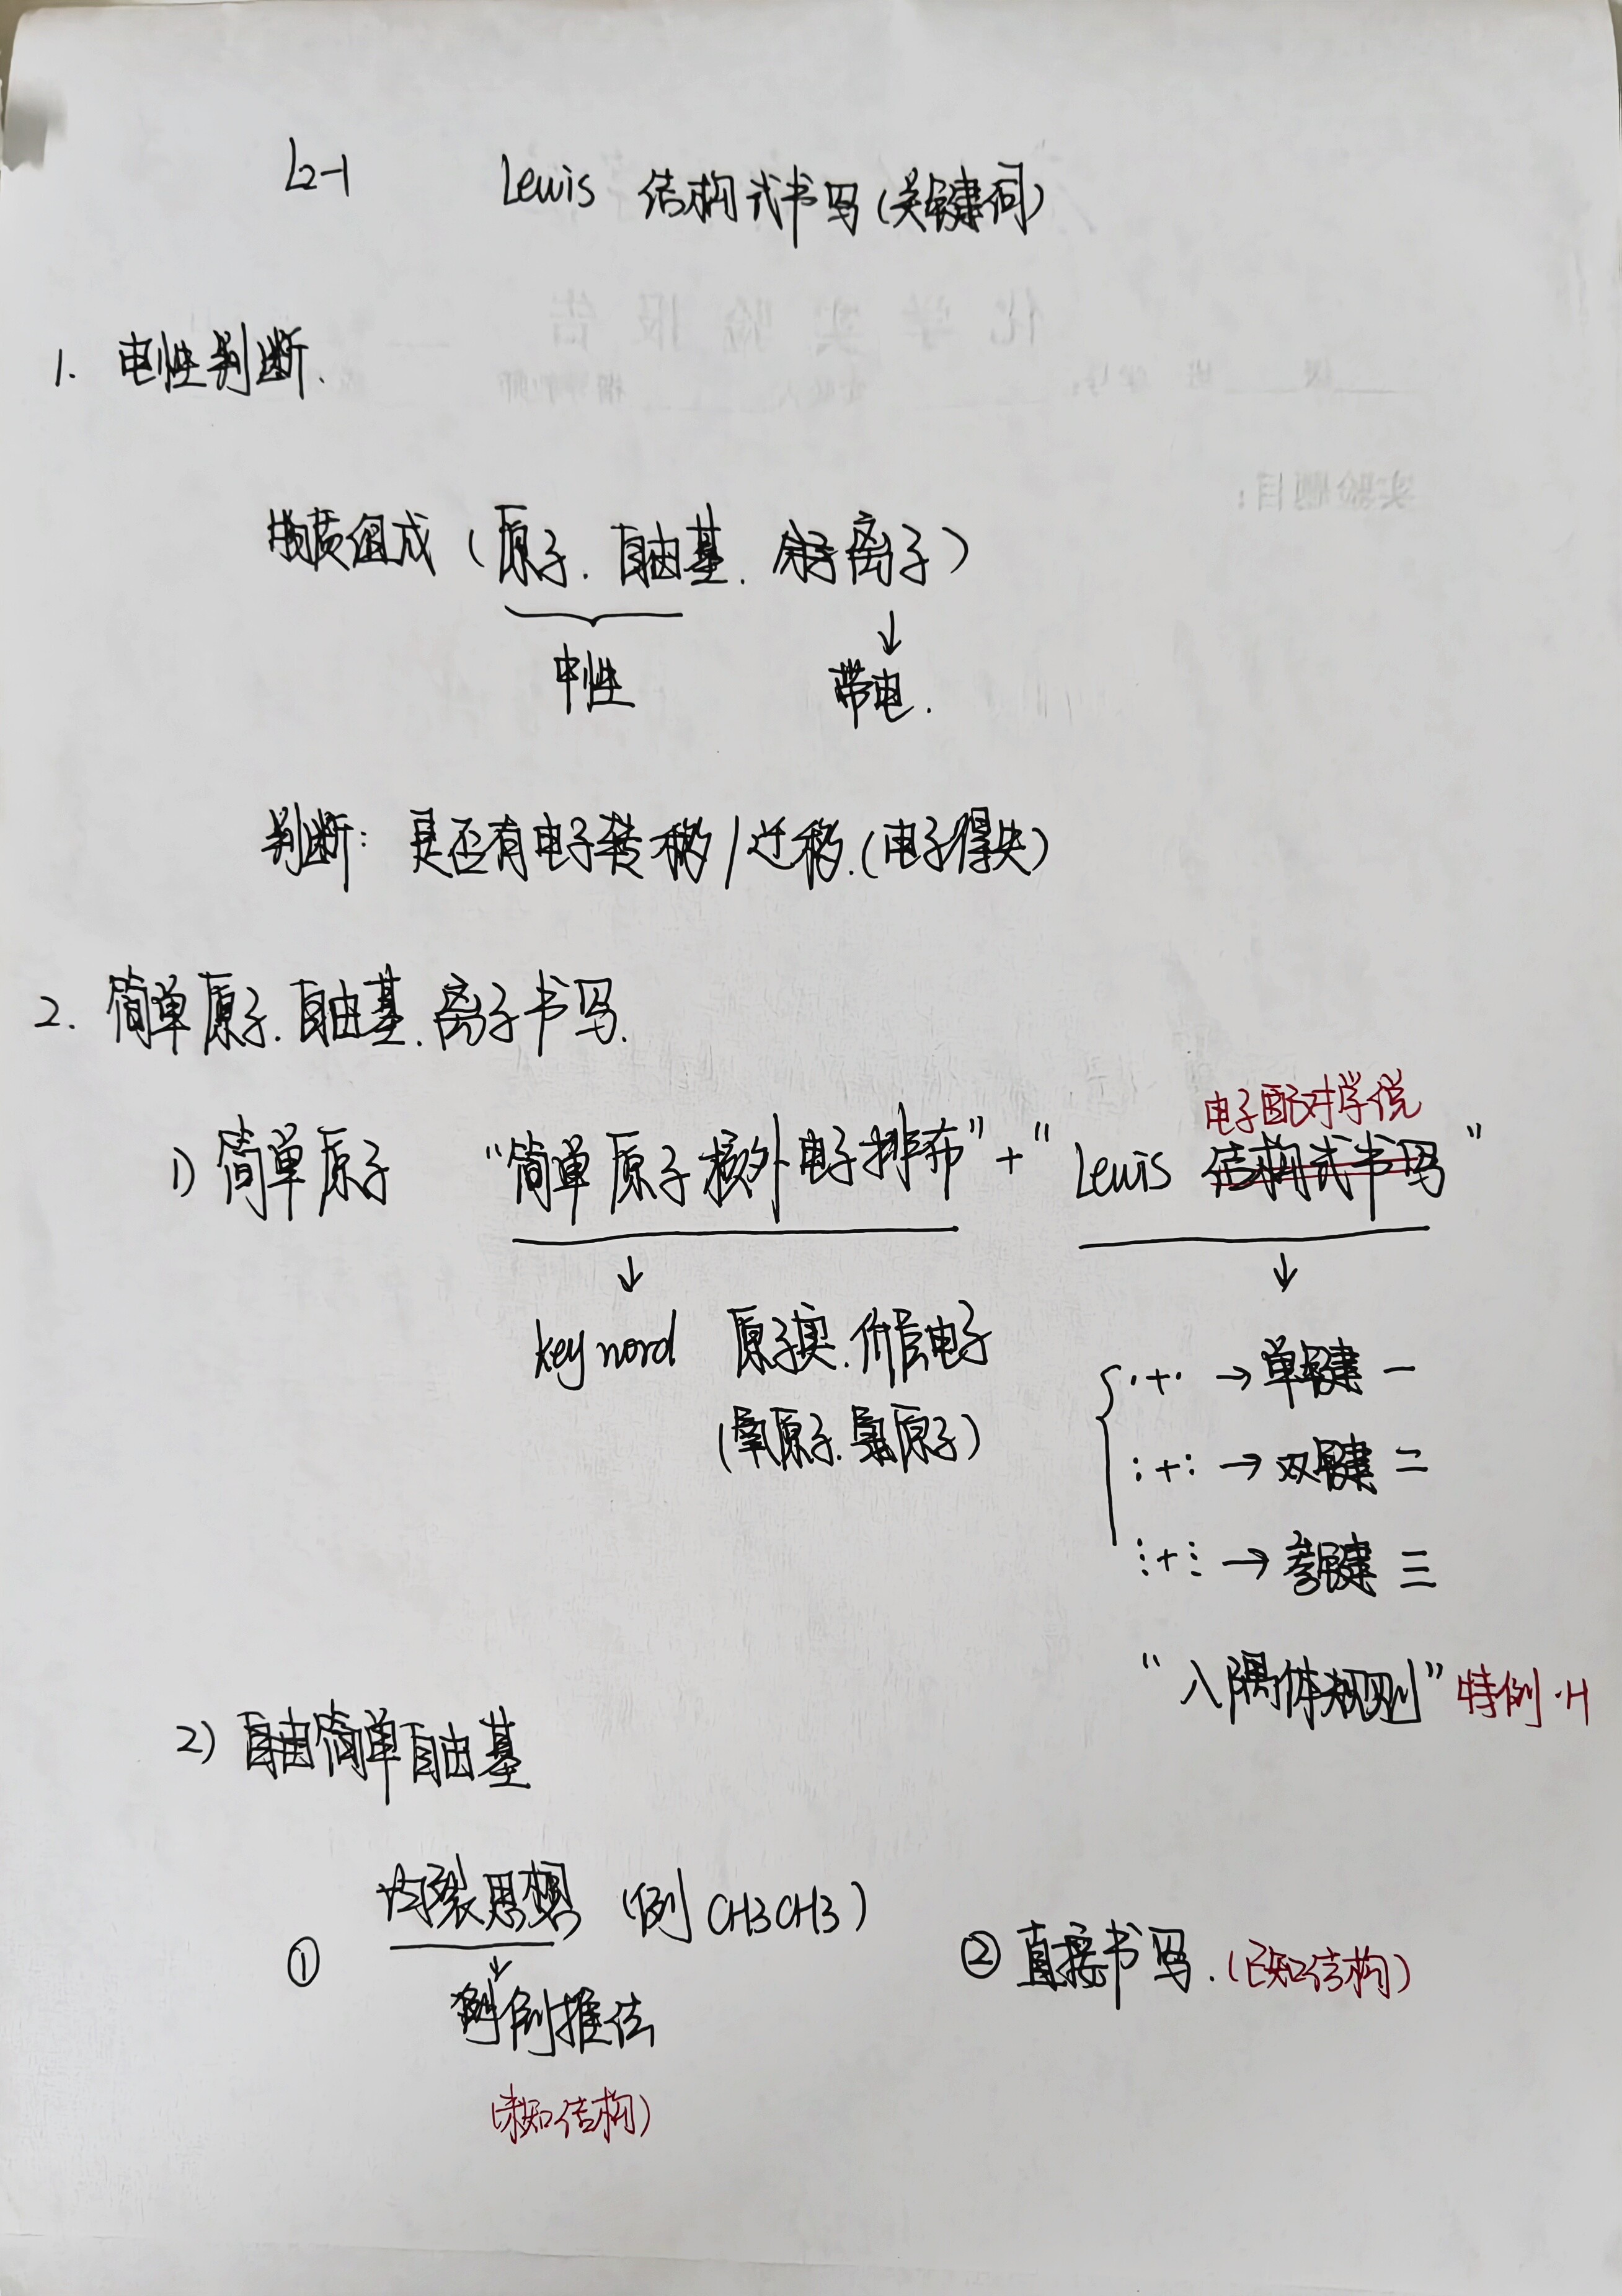 L2-1 Lewis 结构式书写(关键词)
1. 电性判断.
物质组成(原子. 自由基. 离子)
中性 带电.
判断: 是否有电子转移/迁移.(电子得失)
2. 简单原子.自由基.离子书写.
电子配对学说
1) 简单原子 "简单原子核外电子排布"+"Lewis 结构式书写"
↓ ↓
key word 原子实.价层电子
(氧原子.氮原子)
·+· → 单键 一
:+: → 双键 二
⋮+⋮ → 叁键 三
"八隅体规则" 特例 ·H
2) 自由简单自由基
① 均裂思想 (例 CH3CH3)
② 直接书写.(已知结构)
推法
(未知结构)
化学实验报告
级 班 学号: 实验人 指导教师
实验题目: